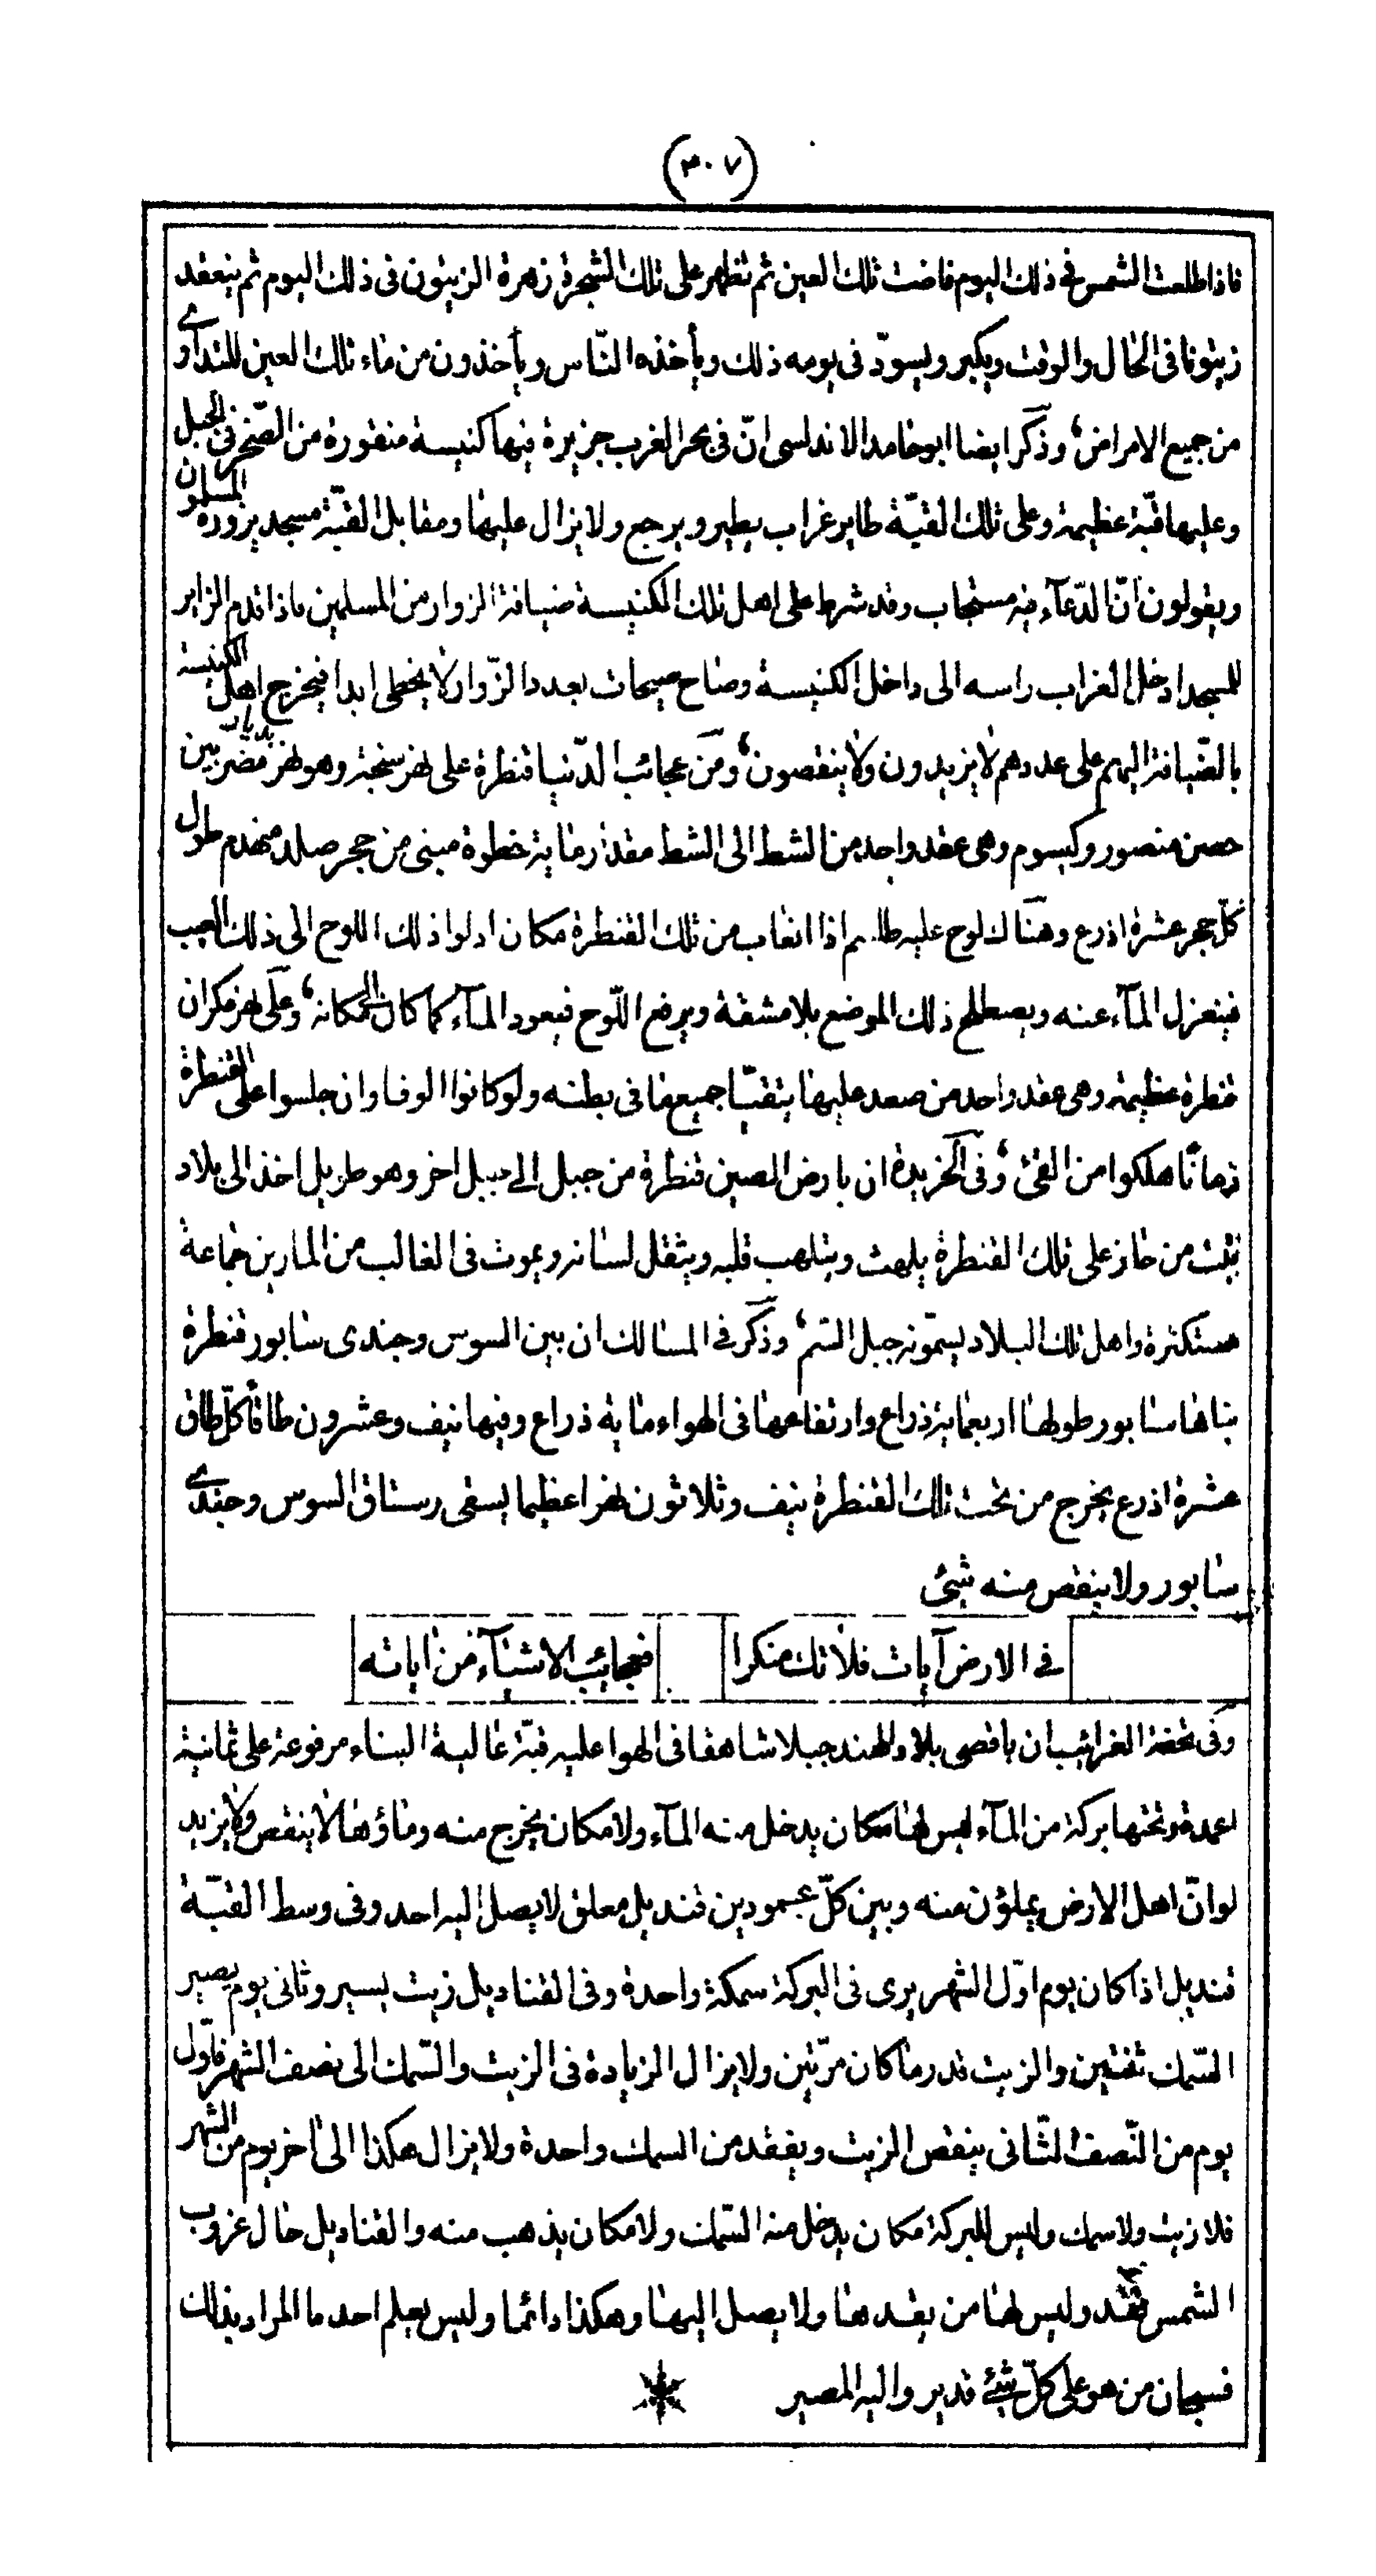 (٣٠٧)
فاذا طلعت الشمس فی ذلك اليوم فاضت تلك العين ثم تظهر علی تلك الشجرة زهرة الزيتون فی ذلك اليوم ثم ينعقد
زيتونا فی الحال والوقت ويكبر ويسودّ فی يومه ذلك ويأخذه النّاس ويأخذون من ماء تلك العين للتداوی
من جميع الامراض، وذكر ايضا ابو حامد الاندلسی انّ فی بحر الغرب جزيرة فيها كنيسة منقورة من الصّخر فی الجبل
وعليها قبّة عظيمة وعلی تلك القبّة طاير غراب يطير ويرجع ولا يزال عليها ومقابل القبّة مسجد يزوره المسلمون
ويقولون انّ الدّعآء فيه مستجاب وقد شرط علی اهل تلك الكنيسة ضيافة الزوار من المسلمين فاذا قدم الزاير
للمسجد ادخل الغراب راسه الی داخل الكنيسة وصاح صيحات بعدد الزّوار لا يخطی ابدا فيخرج اهل الكنيسة
بالضّيافة اليهم علی عددهم لا يزيدون ولا ينقصون، ومن عجائب الدّنيا قنطرة علی نهر سنجة وهو نهر بديار مضر بين
حصن منصور وكيسوم وهی عقد واحد من الشط الی الشط مقدار ماية خطوة مبنی من حجر صلد مهندم طول
كلّ حجر عشرة اذرع وهناك لوح عليه طلسم اذا انعاب من تلك القنطرة مكان ادلوا ذلك اللوح الی ذلك العيب
فينعزل المآء عنه ويصطلح ذلك الموضع بلا مشقة ويرفع اللّوح فيعود المآء كما كان الی مكانه، وعلی نهر مكران
قنطرة عظيمة وهی عقد واحد من صعد عليها يتقيّا جميع ما فی بطنه ولو كانوا الوفا وان جلسوا علی القنطرة
زمانًا هلكوا من القئ، وفی الخريدة ان بارض الصين قنطرة من جبل الی جبل اخر وهو طريق اخذ الی بلاد
تبّت من جاز علی تلك القنطرة يلهث ويتلهب قلبه ويثقل لسانه ويموت فی الغالب من المارين جماعة
مستكثرة واهل تلك البلاد يسمّونه جبل السّم، وذكر فی المسالك ان بين السوس وجندی سابور قنطرة
بناها سابور طولها اربعماية ذراع وارتفاعها فی الهواء ماية ذراع وفيها نيف وعشرون طاقًا كلّ طاق
عشرة اذرع يخرج من تحت تلك القنطرة نيف وثلاثون نهرا عظيما يسقی رستاق السوس وجندی
سابور ولا ينقص منه شئ
فی الارض آيات فلا تك منكرا فعجائب الاشيآء من اياته
وفی تحفة الغرائب ان باقصی بلاد الهند جبلا شاهقا فی الهوا عليه قبّة عالية البناء مرفوعة علی ثمانية
اعمدة وتحتها بركة من المآء ليس لها مكان يدخل منه المآء ولا مكان يخرج منه وماؤها لا ينقص ولا يزيد
لو انّ اهل الارض يملؤن منه وبين كلّ عمودين قنديل معلق لا يصل اليه احد وفی وسط القبّة
قنديل اذا كان يوم اوّل الشهر يری فی البركة سمكة واحدة وفی القناديل زيت يسير وثانی يوم يصير
السّمك ثنتين والزيت قدر ما كان مرّتين ولا يزال الزيادة فی الزيت والسّمك الی نصف الشهر فاوّل
يوم من النّصف الثّانی ينقص الزيت ويفقد من السمك واحدة ولا يزال هكذا الی اخر يوم من الشهر
فلا زيت ولا سمك وليس للبركة مكان يدخل منه السّمك ولا مكان يذهب منه والقناديل حال غروب
الشمس تقد وليس لها من يقدها ولا يصل اليها وهكذا دائما وليس يعلم احد ما المراد بذلك
فسبحان من هو علی كلّ شئ قدير واليه المصير